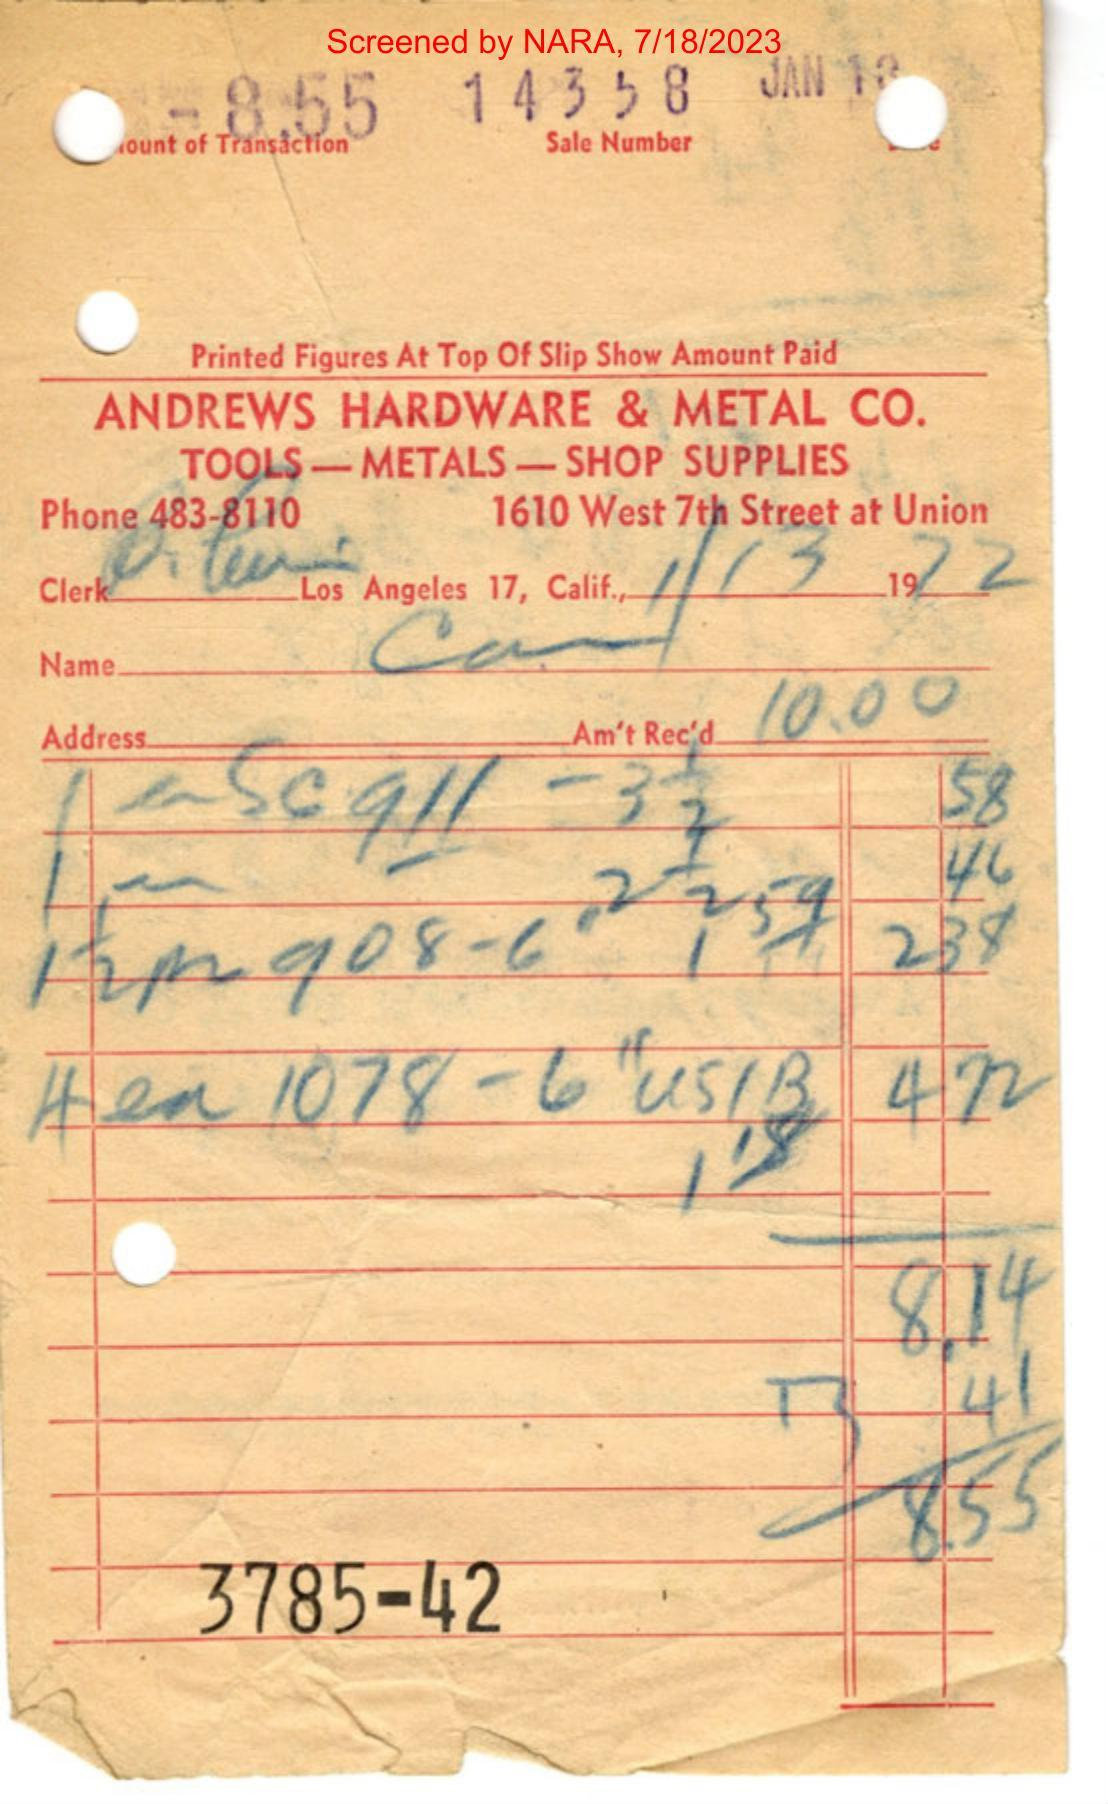 Screened by NARA, 7/18/2023
-8.55 14358 JAN 13
ount of Transaction Sale Number
Printed Figures At Top Of Slip Show Amount Paid
ANDREWS HARDWARE & METAL CO.
TOOLS — METALS — SHOP SUPPLIES
Phone 483-8110 1610 West 7th Street at Union
Clerk Los Angeles 17, Calif., 1/13 1972
Name
Address Am't Rec'd 10.00
1 ea SC 911 - 3 1/2 58
1 ea 2 1/2 46
1 1/2 pr 908-6" 1 59 238
4 ea 1078 - 6" US1B 472
1 18
8.14
41
8.55
3785-42